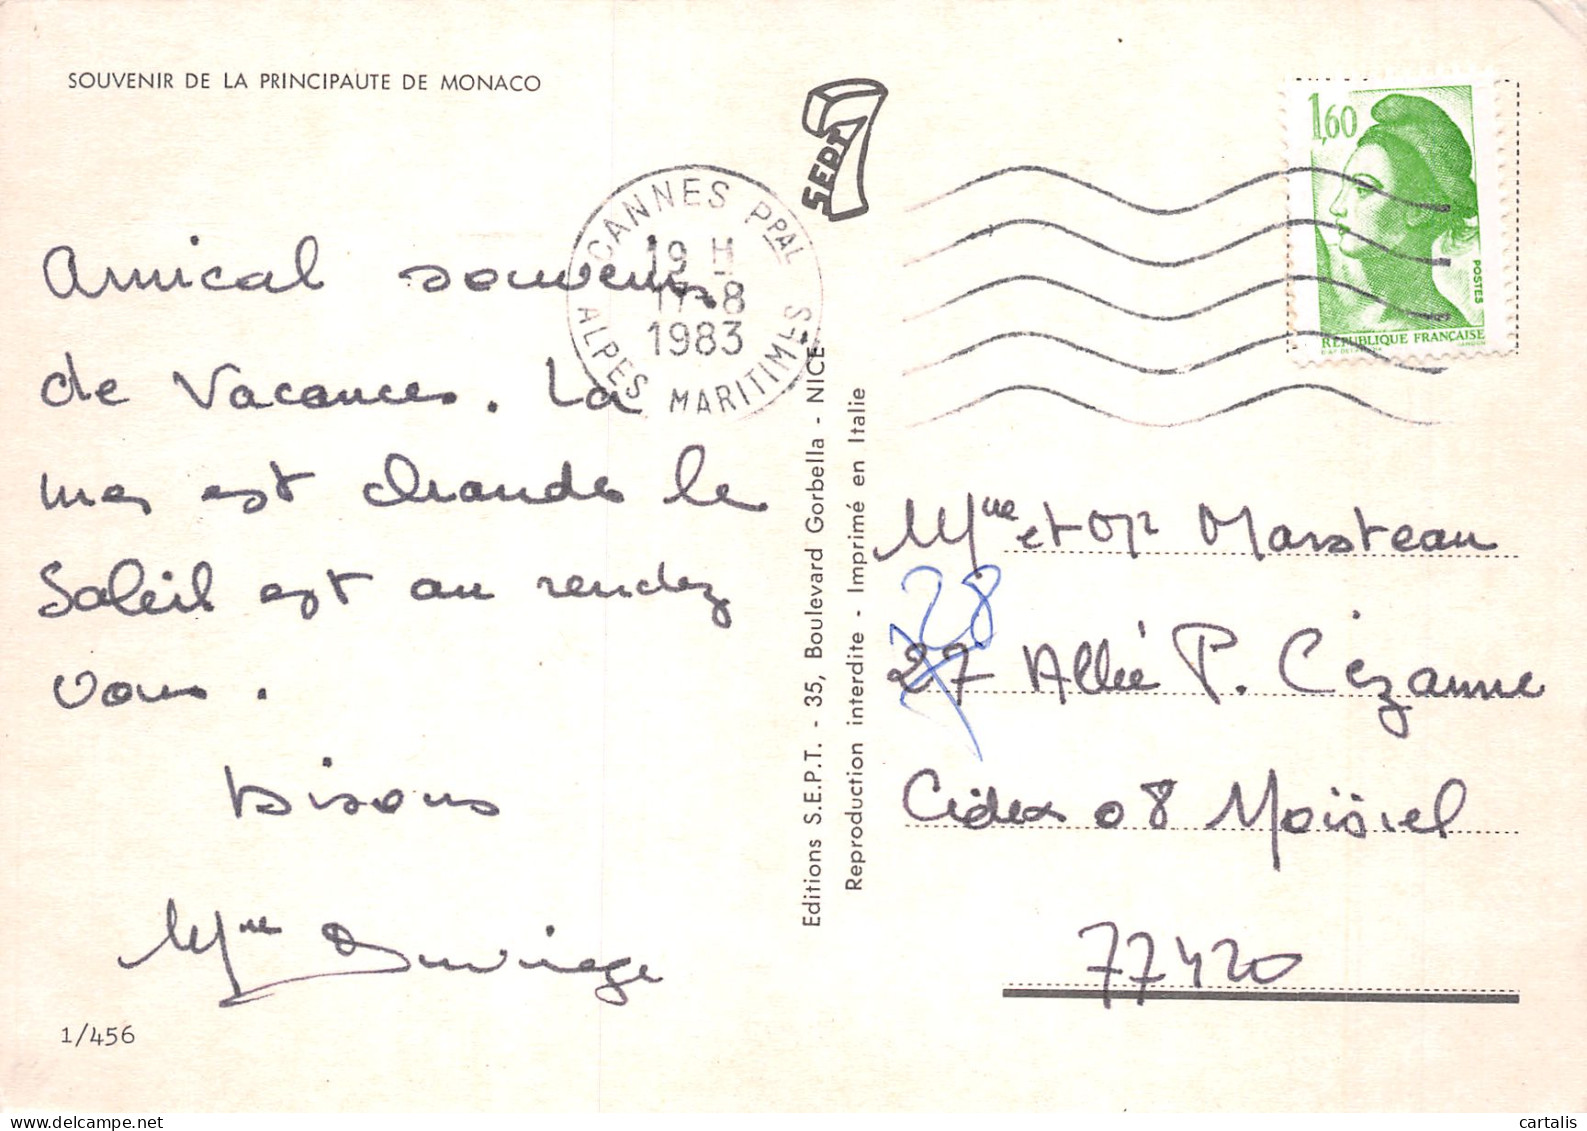 SOUVENIR DE LA PRINCIPAUTE DE MONACO
SEPT
7
CANNES PPAL
19 H
17-8
1983
ALPES MARITIMES
1,60
POSTES
RÉPUBLIQUE FRANÇAISE
Amical souvenir
de Vacances. La
mer est chaude le
Soleil est au rendez
vous.
Bisous
Mme
1/456
Editions S.E.P.T. - 35, Boulevard Gorbella - NICE
Reproduction interdite - Imprimé en Italie
Mme et Mr Marsteau
28
27 Allée P. Cézanne
Cidex 08 Moissiel
77420
delcampe.net
cartalis